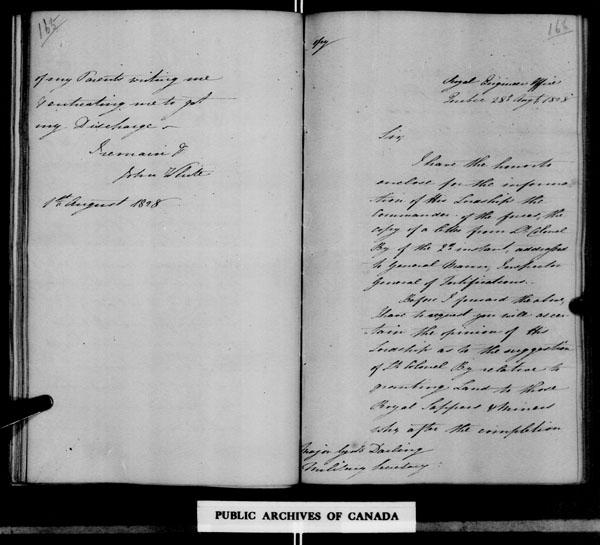 165
of my Parents writing me
& entreating me to get
my Discharge -
I remain &
John
1st August 1828
166
Copy
Royal Engineer Office
Quebec 28th Augt 1828
Sir,
I have the honor to
enclose for the informa
tion of His Lordship the
Commander of the forces, the
copy of a letter from Lt Colonel
By of the 2d instant, addressed
to General Mann, Inspector
General of Fortifications.
Before I forward the above,
I have to request you will ascer
tain the opinion of His
Lordship as to the suggestion
of Lt Colonel By relative to
granting Land to those
Royal Sappers & Miners
who after the completion
Major Darling
Military Secretary
PUBLIC ARCHIVES OF CANADA